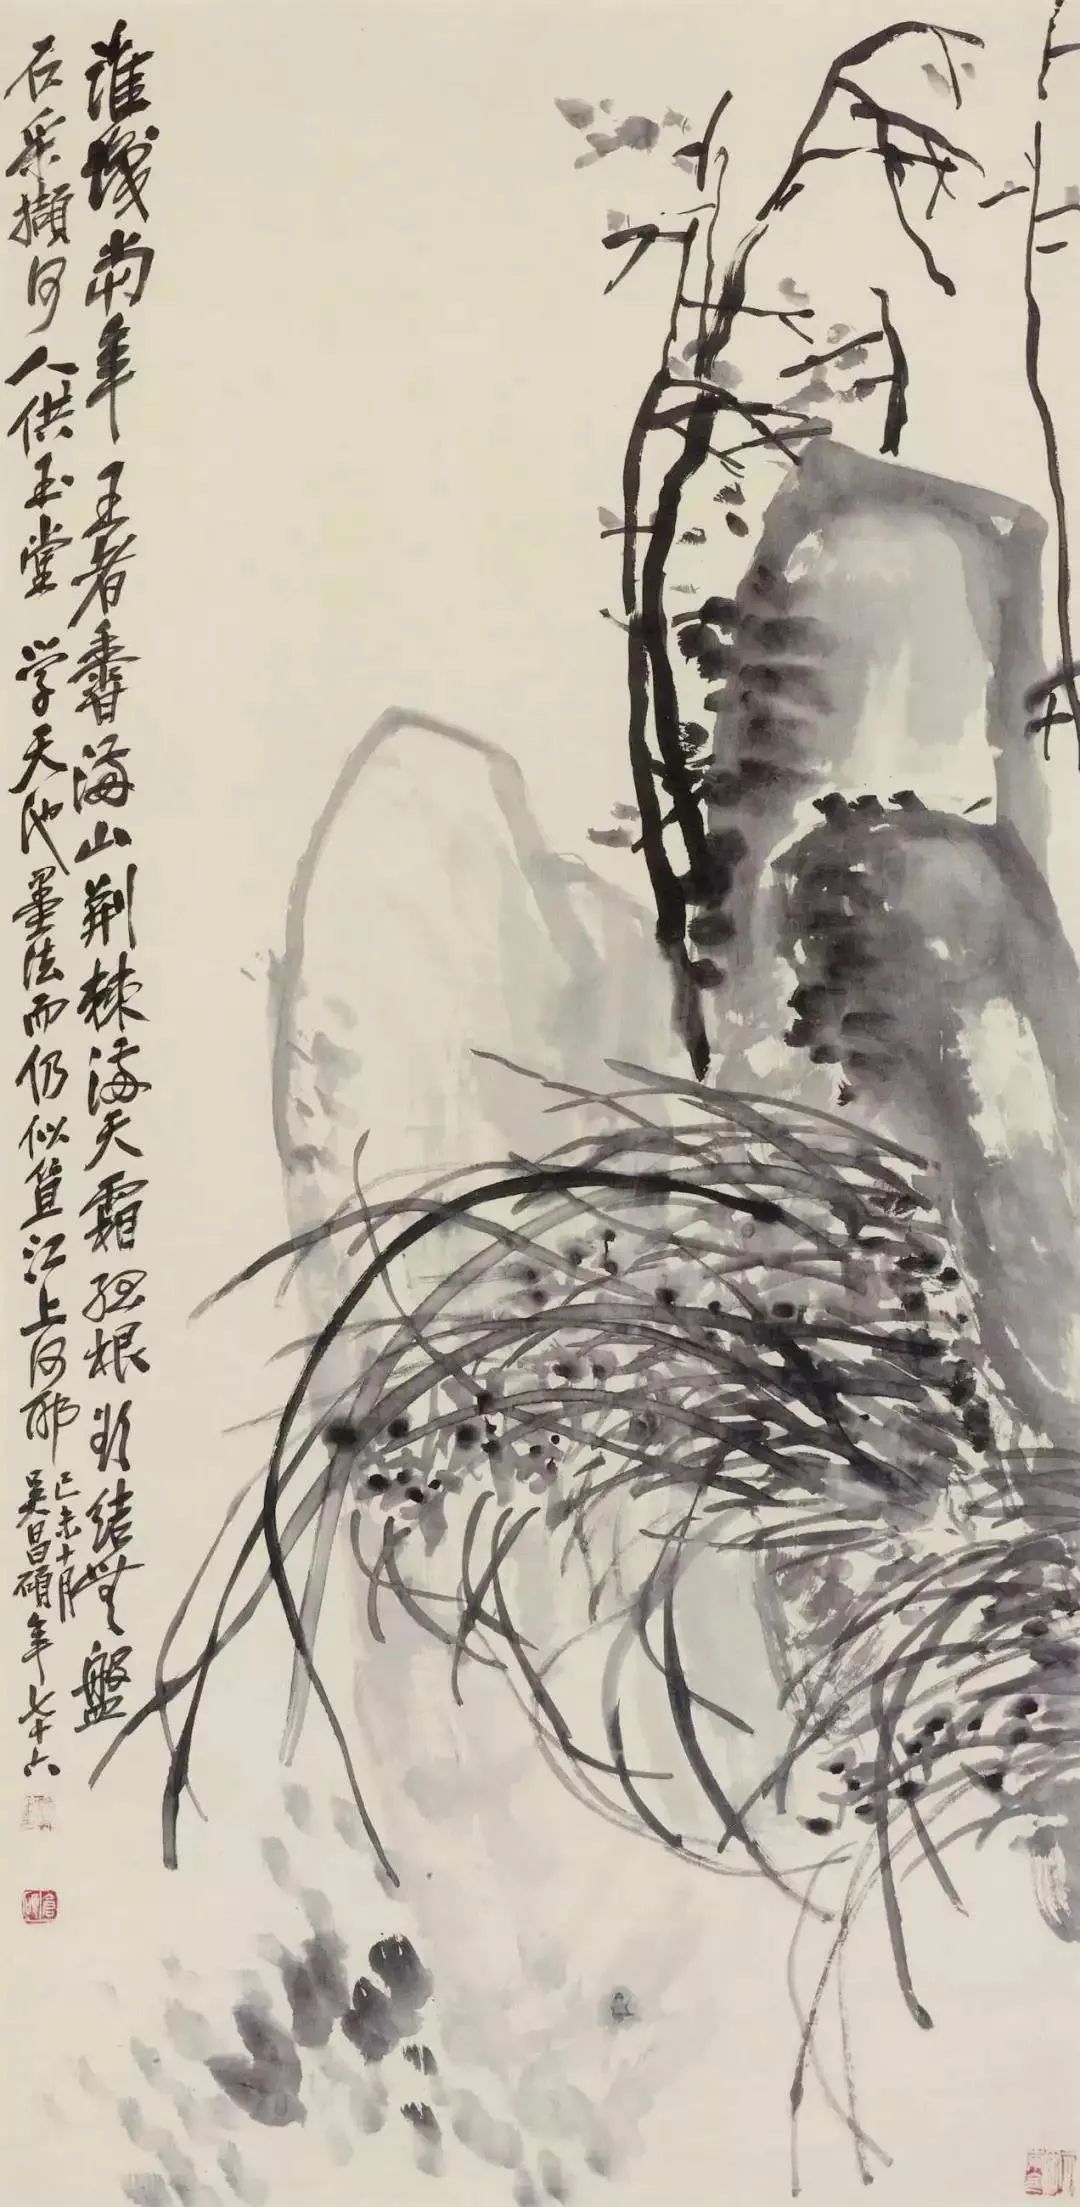 誰識當年王者香滿山荊棘滿天霜孤根結無盤
石采擷何人供玉堂 學天池墨法而仍似笪江上何耶
己未十月
吳昌碩年七十六